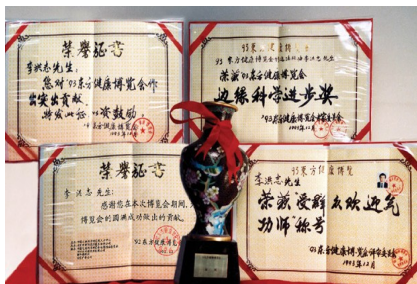 荣誉证书
李洪志先生:
您对'93东方健康博览会作
出突出贡献。
特发此证 以资鼓励
'93东方健康博览会
93东方健康博览会
李洪志先生
荣获'93东方健康博览会
边缘科学进步奖
'93东方健康博览会评审委员会
1993年12月
荣誉证书
李洪志先生:
感谢您在本次博览会期间,
博览会的圆满成功做出的贡献。
'93东方健康博览会
93东方健康博览
李洪志先生
荣获受群众欢迎气
功师称号
93东方健康博览会评审委员会
1993年12月